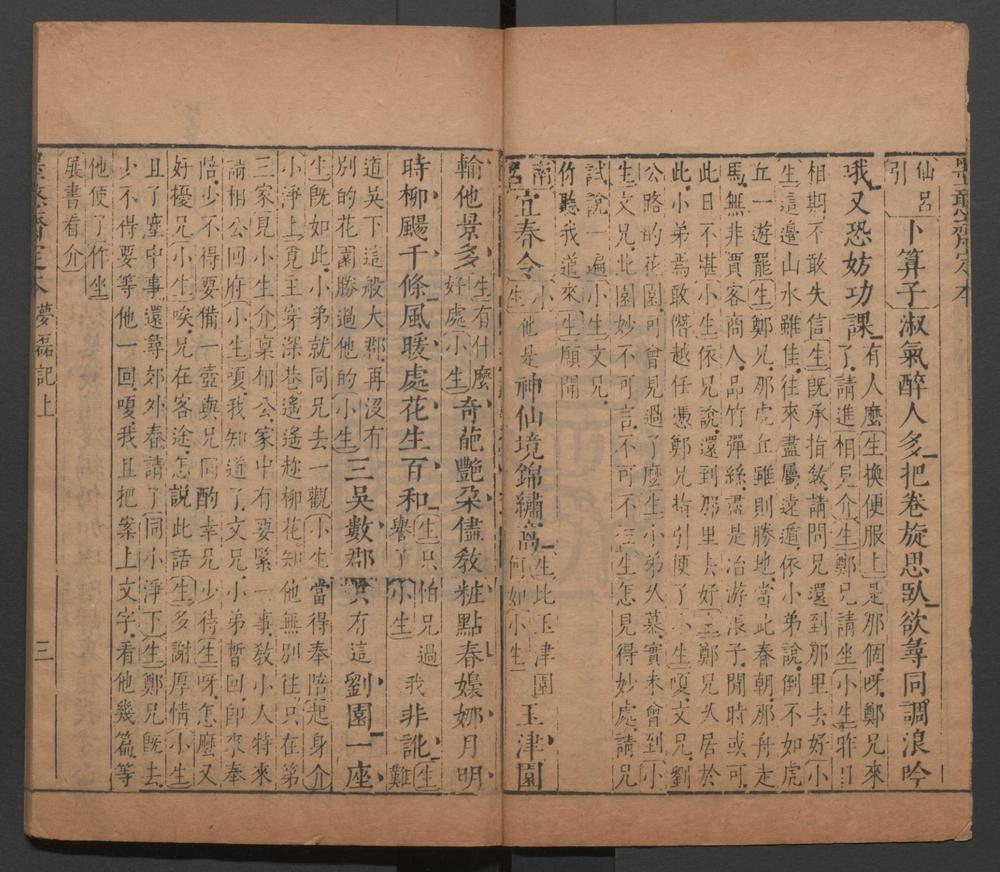 墨憨齋定本
仙呂引 卜算子 淑氣醉人多把卷旋思臥欲尋同調浪吟
哦又恐妨功課 有人麼 生 換便服上 是那個呀鄭兄來了請進相見介 生 鄭兄請坐 小生 昨日
相期不敢失信 生 既承指敎請問兄還到那里去好 小
生 這邊山水雖佳往來盡屬遠遁依小弟說倒不如虎
丘一遊罷 生 鄭兄那虎丘雖則勝地當此春朝那舟走
馬無非賈客商人品竹彈絲盡是冶游浪子閒時或可
此日不堪 小生 依兄說還到那里去好 生 鄭兄久居於
此小弟焉敢僭越任憑鄭兄指引便了 小生 嗄文兄劉
公路的花園可曾見過了麼 生 小弟久慕實未曾到 小
生 文兄此園妙不可言不可不 生 怎見得妙處請兄
試說一遍 小生 文兄
竹聽我道來 生 願聞
南呂 宜春令 小生 他是神仙境錦繡窩 生 比玉津園何如 小生 玉津園
輸他景多 生 有什麼好處 小生 奇葩艷朶儘敎粧點春嬝娜月明
時柳颺千條風暖處花生百和 生 只怕兄過譽了 小生 我非訛 生 難
道吳下這般大郡再沒有別的花園勝過他的 小生 三吳數郡只有這劉園一座
生 既如此小弟就同兄去一觀 小生 當得奉陪 起身介
小淨上 竟王穿深巷遙遙趂柳花知他無別往只在第
三家見小生介 稟相公家中有要緊一事敎小人特來
請相公回府 小生 嗄我知道了文兄小弟暫回卽來奉
陪少不得要備一壺與兄同酌幸兄少待 生 呀怎麼又
好擾兄 小生 唉兄在客途怎說此話 生 多謝厚情 小生
且了塵中事還尋郊外春請了 同小淨下 生 鄭兄旣去
少不得要等他一回嗄我且把案上文字看他幾篇等
他便了 作坐
展書看介
墨憨齋定本 夢磊記上 三